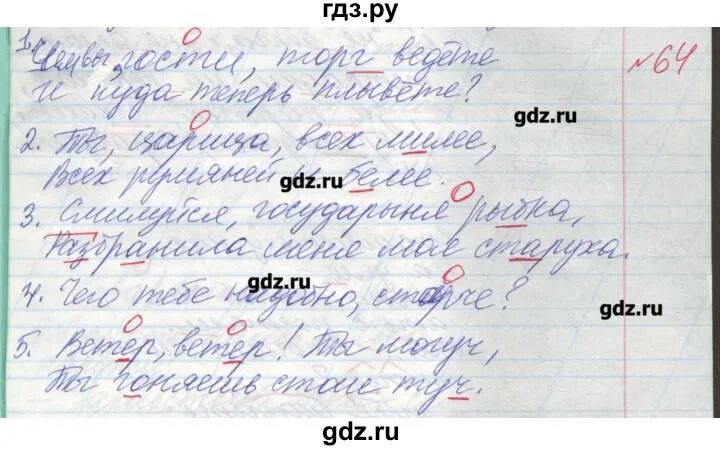 гдз.ру
1. Чем вы, гости, торг ведете
№64
И куда теперь плывете?
gdz.ru
2. Ты, царица, всех милее,
Всех румяней и белее.
gdz.ru
3. Смилуйся, государыня рыбка,
Разбранила меня моя старуха.
gdz.ru
4. Чего тебе надобно, старче?
gdz.ru
5. Ветер, ветер! Ты могуч,
Ты гоняешь стаи туч.
gdz.ru